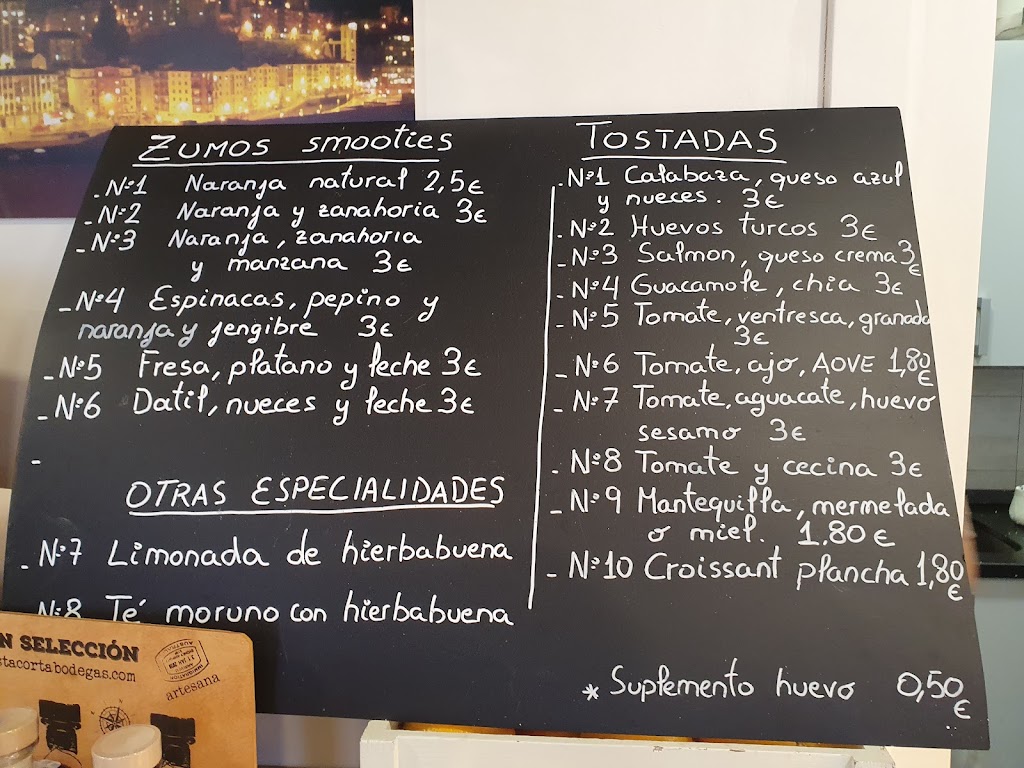 ZUMOS smooties
- Nº1 Naranja natural 2,5€
- Nº2 Naranja y zanahoria 3€
- Nº3 Naranja, zanahoria
y manzana 3€
- Nº4 Espinacas, pepino y
naranja y jengibre 3€
- Nº5 Fresa, platano y leche 3€
- Nº6 Datil, nueces y leche 3€
-
OTRAS ESPECIALIDADES
- Nº7 Limonada de hierbabuena
Nº8 Té moruno con hierbabuena
TOSTADAS
- Nº1 Calabaza, queso azul
y nueces. 3€
- Nº2 Huevos turcos 3€
- Nº3 Salmon, queso crema 3€
- Nº4 Guacamole, chia 3€
- Nº5 Tomate, ventresca, granada
3€
- Nº6 Tomate, ajo, AOVE 1,80€
- Nº7 Tomate, aguacate, huevo
sesamo 3€
- Nº8 Tomate y cecina 3€
- Nº9 Mantequilla, mermelada
o miel. 1.80€
- Nº10 Croissant plancha 1,80€
* Suplemento huevo 0,50€
N SELECCIÓN
stacortabodegas.com
artesana